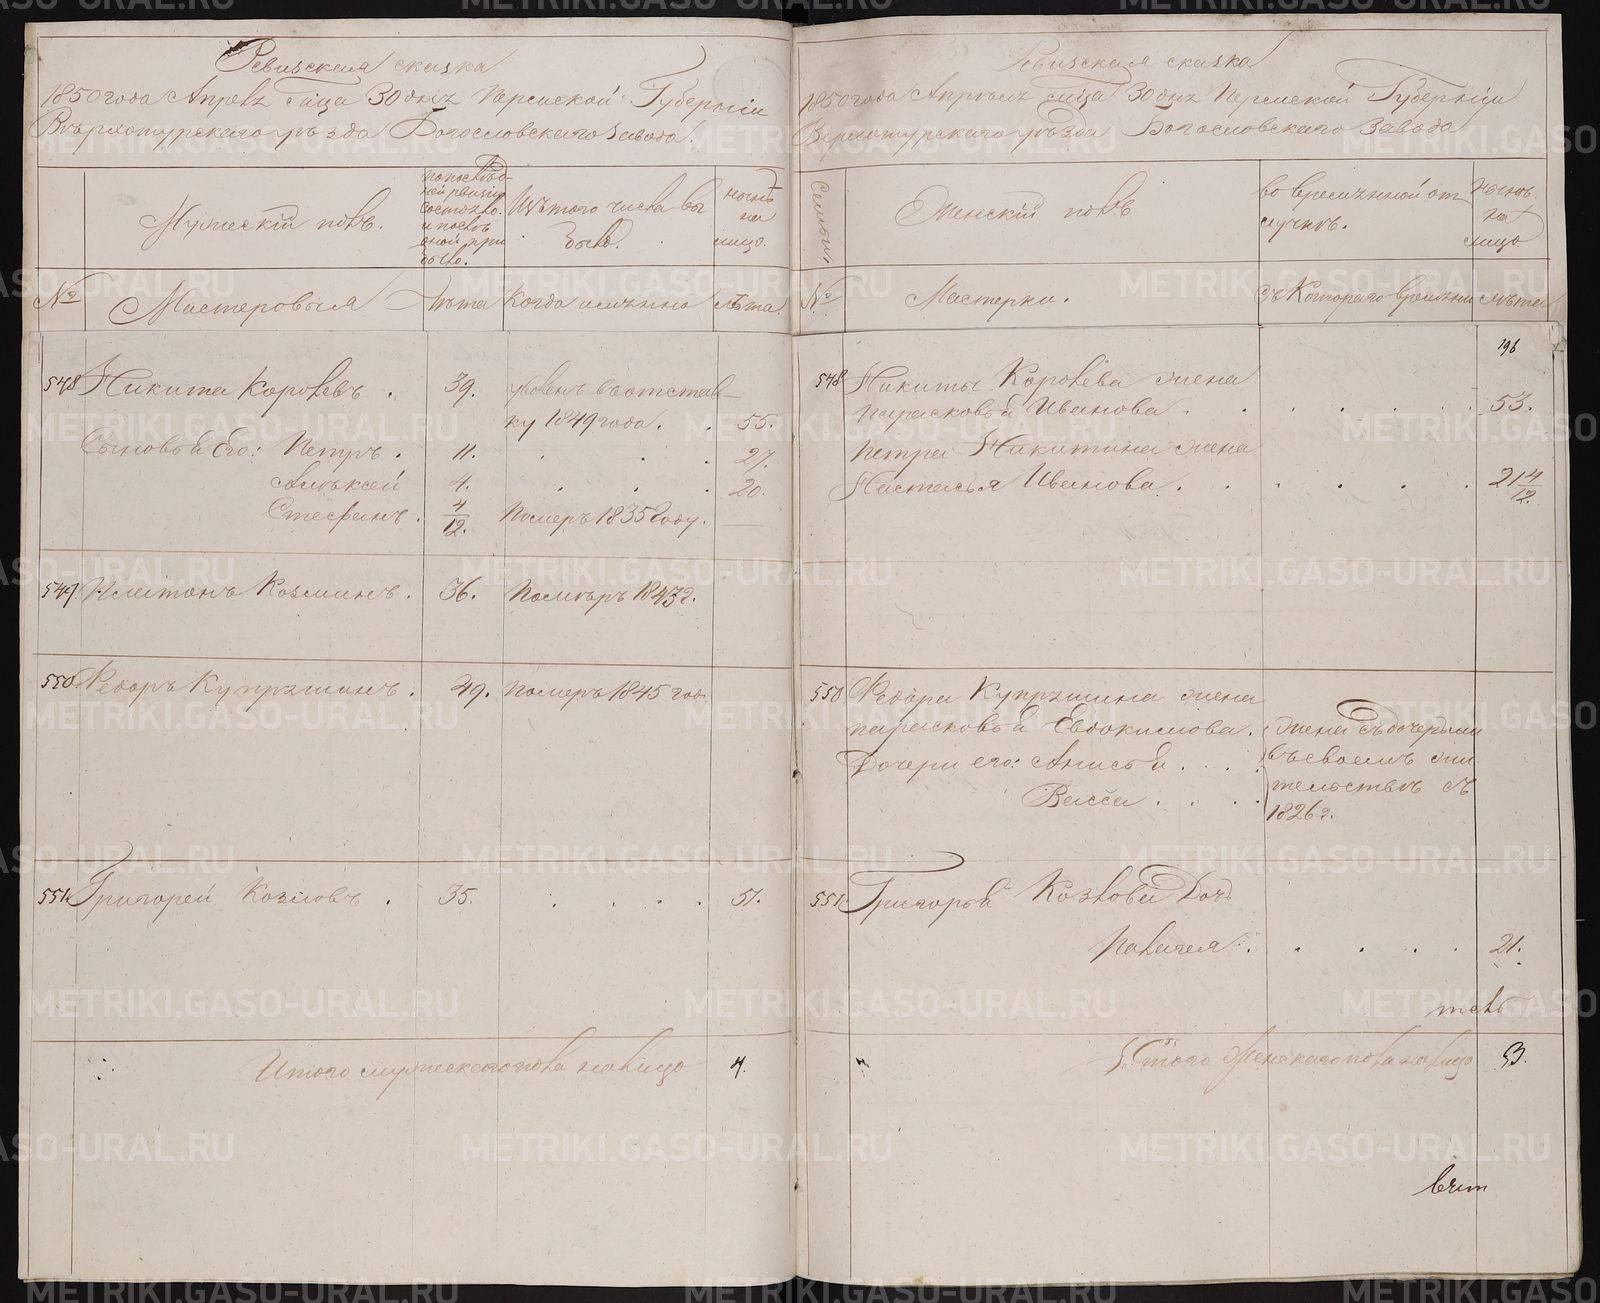 Ревизская сказка
1850 года Апреля м̃ца 30 дня Пермской Губерніи
Верхотурскаго уѣзда Богословскаго завода.
Мужескій полъ.
По послѣд-
ней ревизіи
состояло.
и послѣ
оной при
было.
Изъ того числа вы
было.
Нынѣ
на
лицо.
№
Мастеровыя
Лѣта
Когда именно
Лѣта.
548
Никита Королевъ .
39.
уволенъ въ отстав-
ку 1849 года.
55.
Сыновья Его: Петръ .
11.
27.
Алексей
4.
20.
Стефанъ .
4/12.
Померъ 1835 году.
549
Платонъ Козминъ .
36.
Помѣръ 1843 г.
550
Федоръ Купряшинъ .
49.
Померъ 1845 год.
551.
Григорей Козловъ .
35.
51.
Итого мужескаго пола налицо
4.
Ревизская сказка
1850 года Апрѣля м̃ца 30 дня Пермской Губерніи
Верхотурскаго уѣзда Богословскаго завода
Семьи
Женскій полъ
во временной от
лучкѣ.
Нынѣ
на
лицо
№
Мастерки.
съ Котораго времяни
лѣта
196
548
Никиты Королева жена
Парасковья Иванова .
53.
Петра Никитина жена
Настасья Иванова .
21 4/12.
550
Федора Купряшина жена
парасковья Евдокимова .
Дочери его: Анисья . . .
Васса . . .
Жена съ дочерьми
въ своемъ жи
тельствѣ съ
1826 г.
551.
Григорья Козлова Дочь
Палагея .
21.
Итого Женскаго пола налицо
3.
METRIKI.GASO-URAL.RU